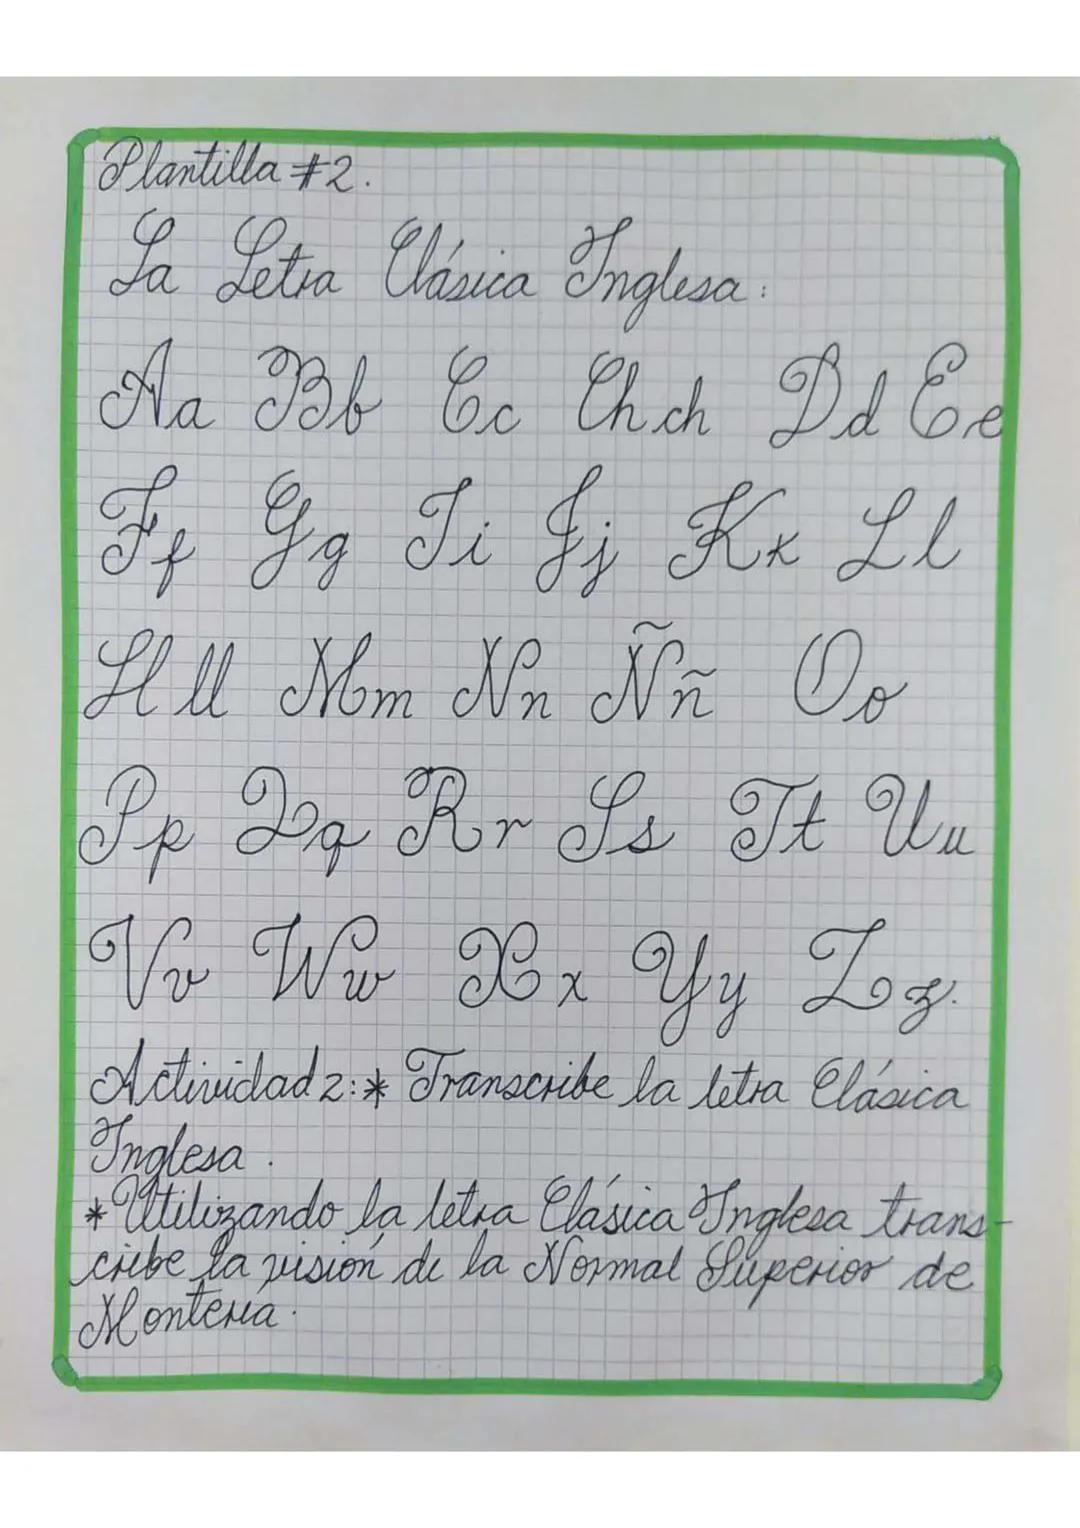 Plantilla #2.
La Letra Clásica Inglesa:
Aa Bb Cc Ch ch Dd Ee
Ff Gg Ii Jj Kk Ll
Ll ll Mm Nn Ññ Oo
Pp Qq Rr Ss Tt Uu
Vv Ww Xx Yy Zz.
Actividad 2:* Transcribe la letra Clásica
Inglesa.
*Utilizando la letra Clásica Inglesa trans-
cribe la visión de la Normal Superior de
Montería.